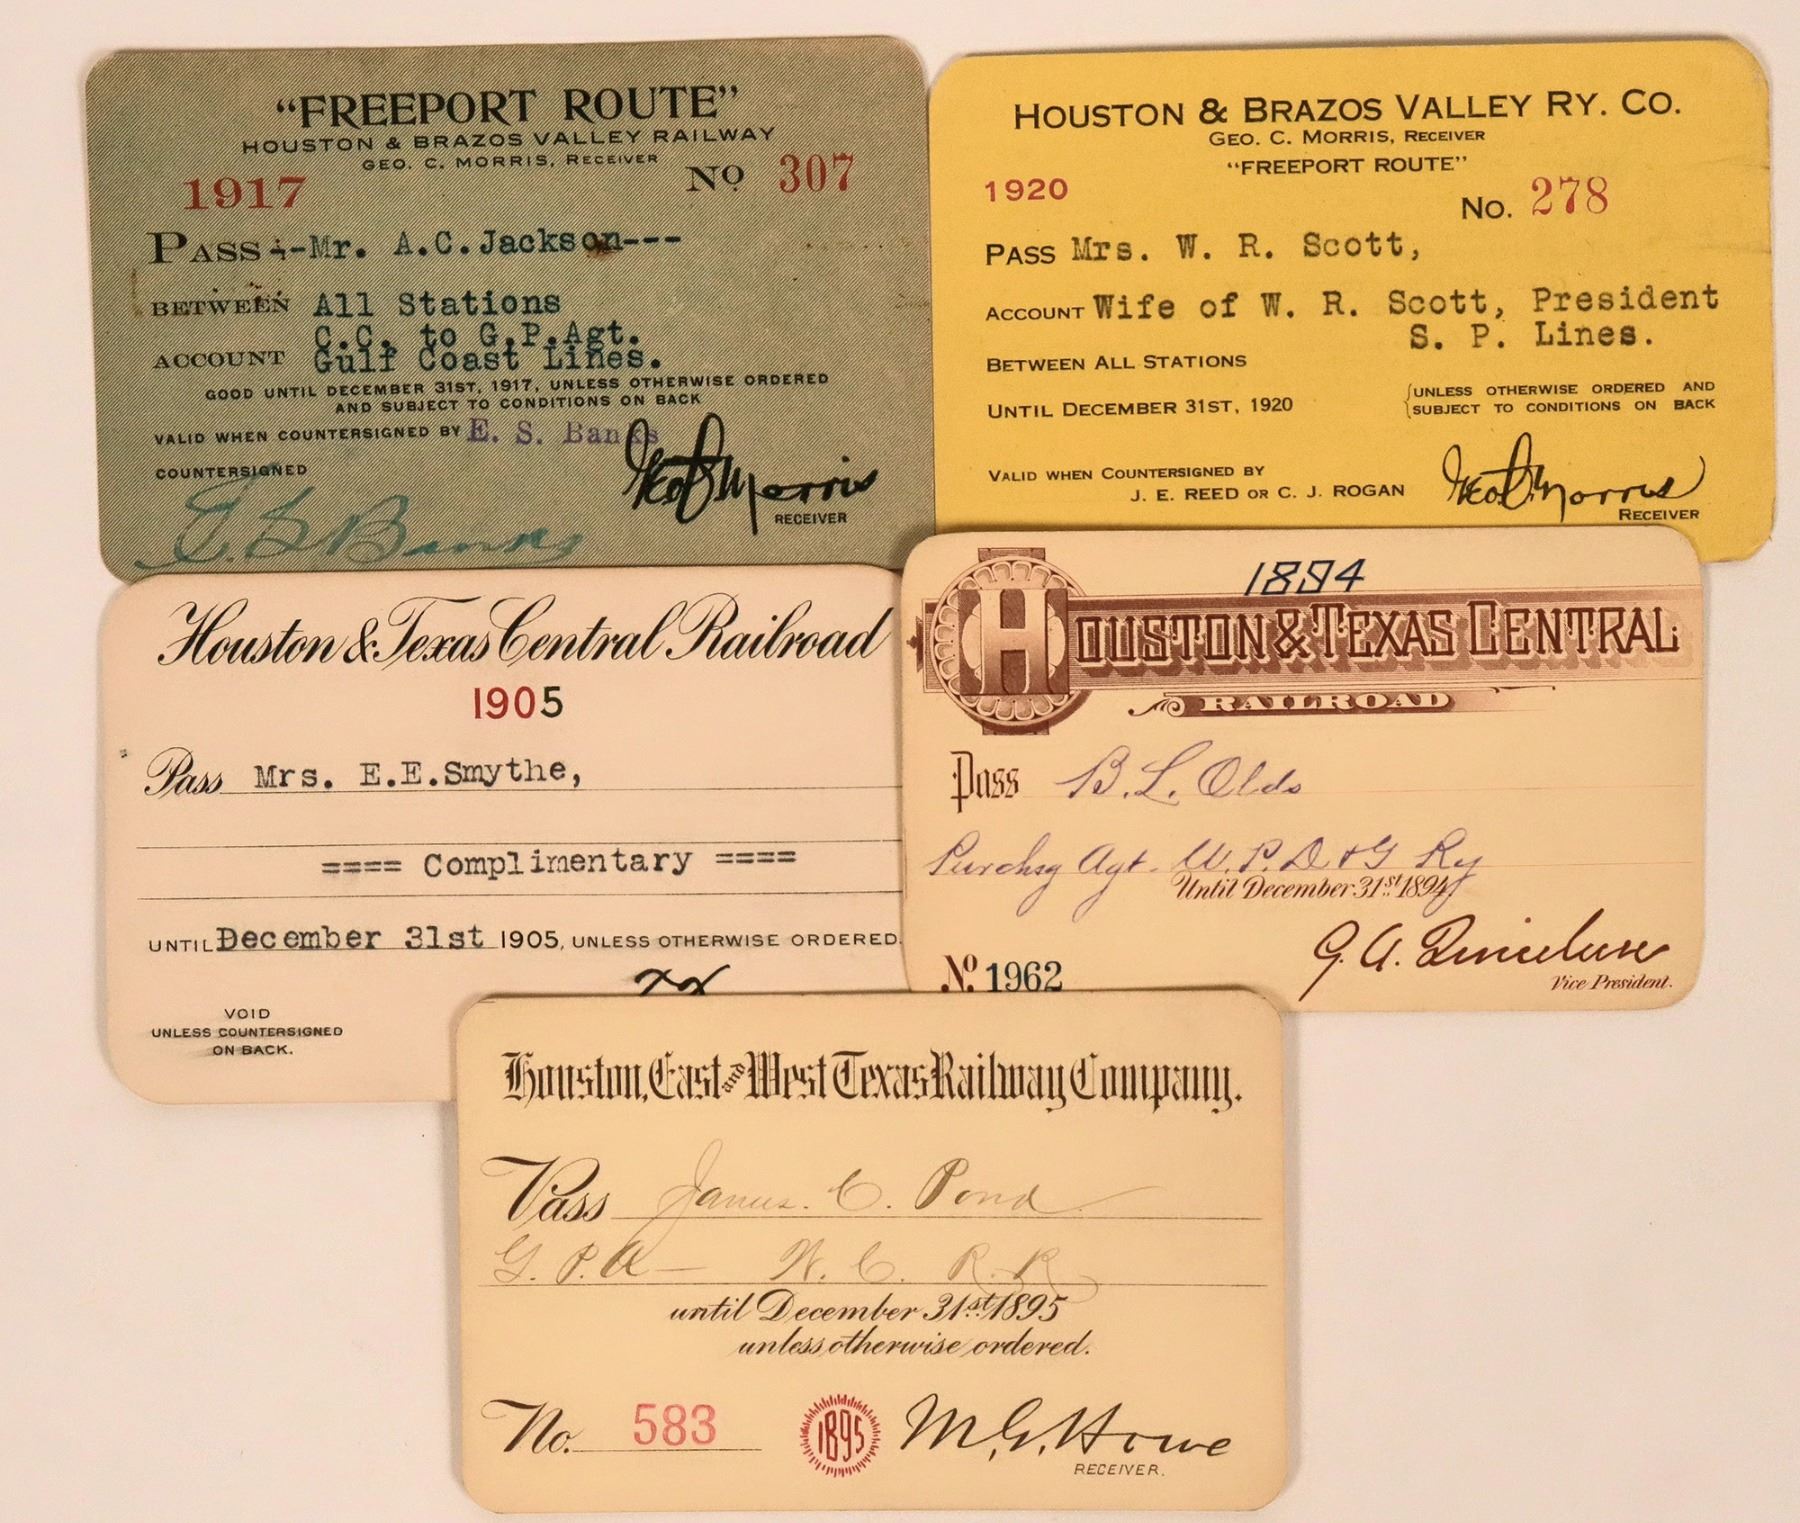 "FREEPORT ROUTE"
HOUSTON & BRAZOS VALLEY RAILWAY
GEO. C. MORRIS, RECEIVER
1917 No 307
PASS --Mr. A.C.Jackson---
BETWEEN All Stations
C.C. to G.P.Agt.
ACCOUNT Gulf Coast Lines.
GOOD UNTIL DECEMBER 31ST, 1917, UNLESS OTHERWISE ORDERED
AND SUBJECT TO CONDITIONS ON BACK
VALID WHEN COUNTERSIGNED BY E. S. Banks
COUNTERSIGNED
E. S. Banks
Geo C Morris
RECEIVER
HOUSTON & BRAZOS VALLEY RY. CO.
GEO. C. MORRIS, RECEIVER
"FREEPORT ROUTE"
1920 No. 278
PASS Mrs. W. R. Scott,
ACCOUNT Wife of W. R. Scott, President
S. P. Lines.
BETWEEN ALL STATIONS
UNTIL DECEMBER 31ST, 1920 {UNLESS OTHERWISE ORDERED AND
SUBJECT TO CONDITIONS ON BACK
VALID WHEN COUNTERSIGNED BY
J. E. REED OR C. J. ROGAN
Geo C Morris
RECEIVER
Houston & Texas Central Railroad
1905
Pass Mrs. E.E.Smythe,
==== Complimentary ====
UNTIL December 31st 1905, UNLESS OTHERWISE ORDERED.
VOID
UNLESS COUNTERSIGNED
ON BACK.
1894
HOUSTON & TEXAS CENTRAL
RAILROAD
Pass B. L. Olds
Purchsg Agt. U. P. D & G Ry
Until December 31st 1894
G. A.
Vice President.
No. 1962
Houston, East and West Texas Railway Company.
Pass James. C. Pond
G. P. A — W. C. R. R
until December 31st 1895
unless otherwise ordered.
No. 583 1895 M. G. Howe
RECEIVER.